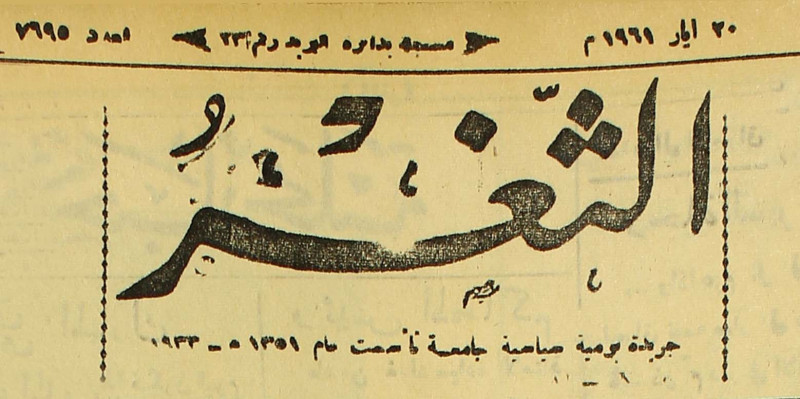 ٢٠ ايار ١٩٦١ م مسجلة بدائرة البريد رقم ٢٣ العدد ٧٦٩٥
الثغر
جريدة يومية سياسية جامعة تأسست عام ١٣٥١ ه ـ ١٩٣٣